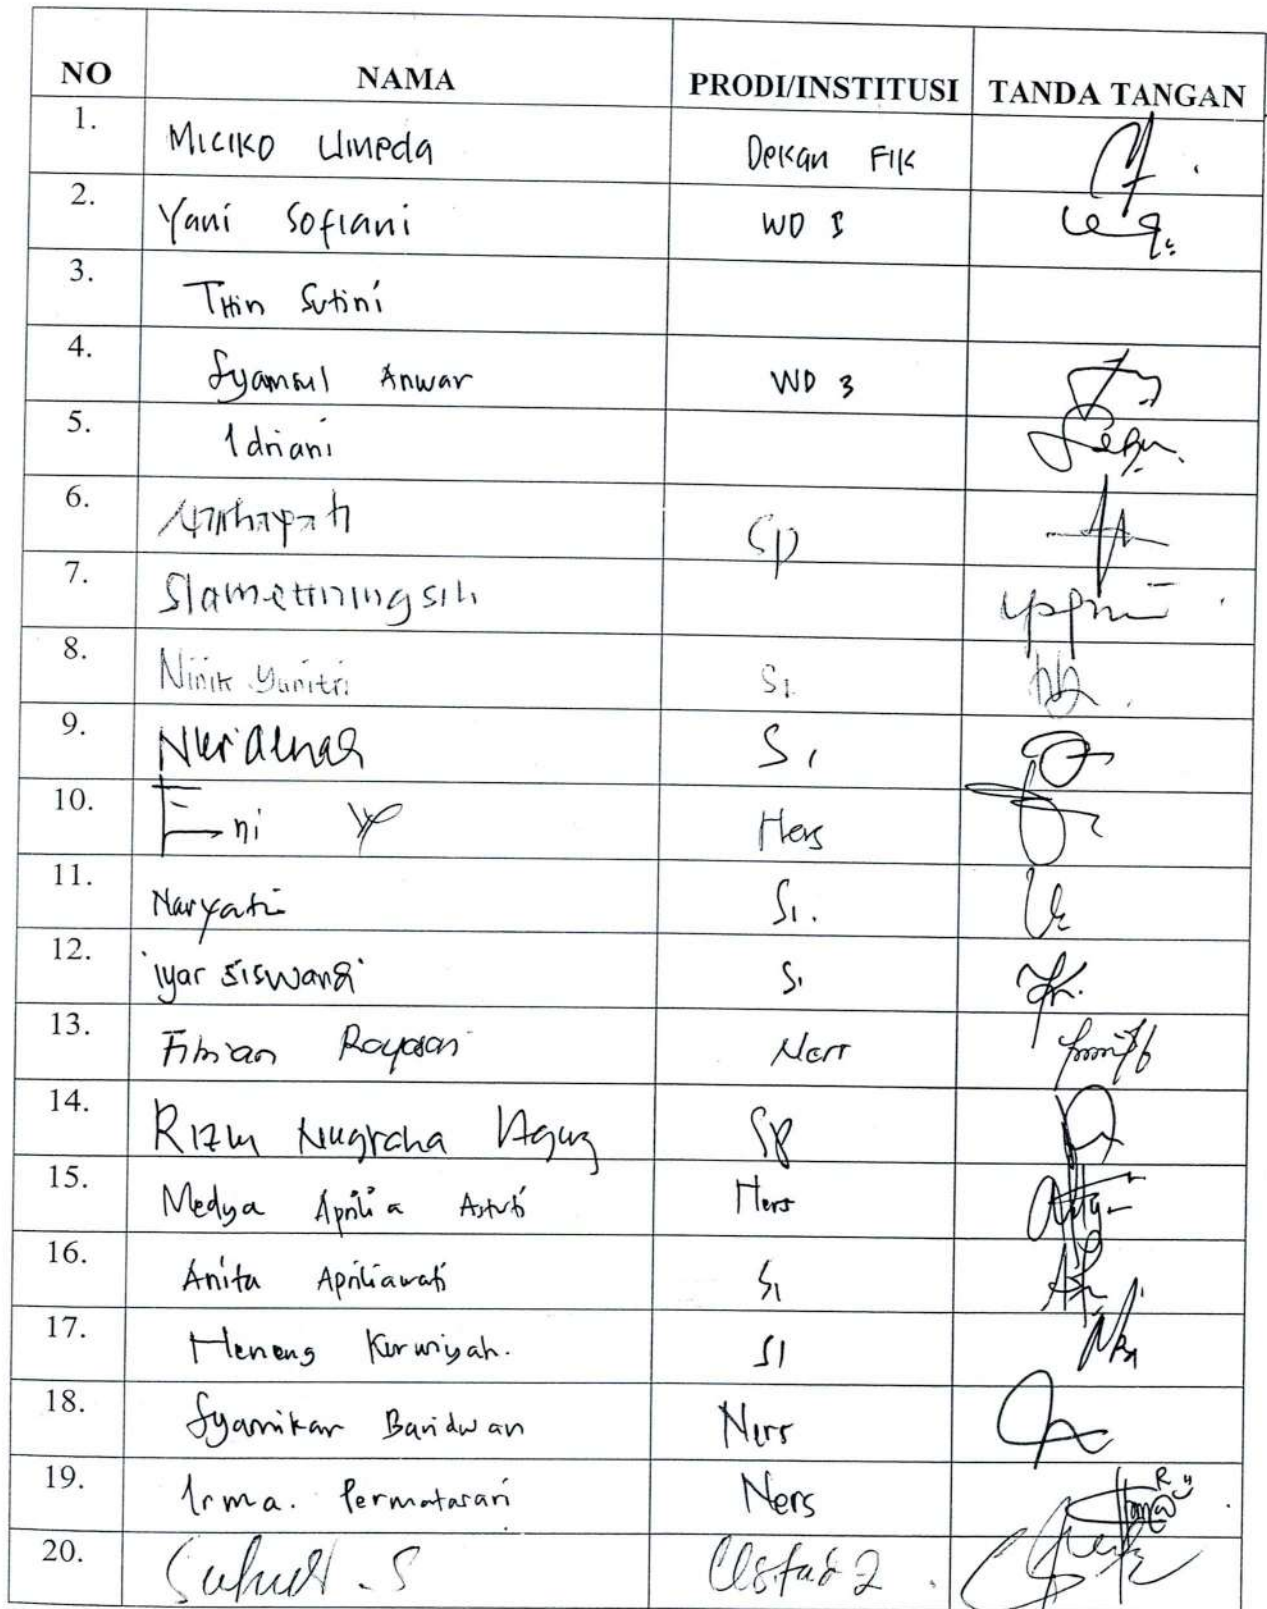 NO NAMA PRODI/INSTITUSI TANDA TANGAN
1. Miciko Umeda Dekan FIK
2. Yani Sofiani WD I
3. Titin Sutini
4. Syamsul Anwar WD 3
5. Idriani
6. Nurhayati SP
7. Slamettiningsih
8. Ninik Yunitri S1
9. Nuraenah S1
10. Eni Ners
11. Naryati S1.
12. iyar siswandi S1
13. Fitrian Rayasari Ners
14. Rizki Nugraha Agung SP
15. Medya Aprilia Astuti Ners
16. Anita Apriliawati S1
17. Neneng Kurwiyah. S1
18. Syamikar Baridwan Ners
19. Irma. Permatasari Ners
20. S